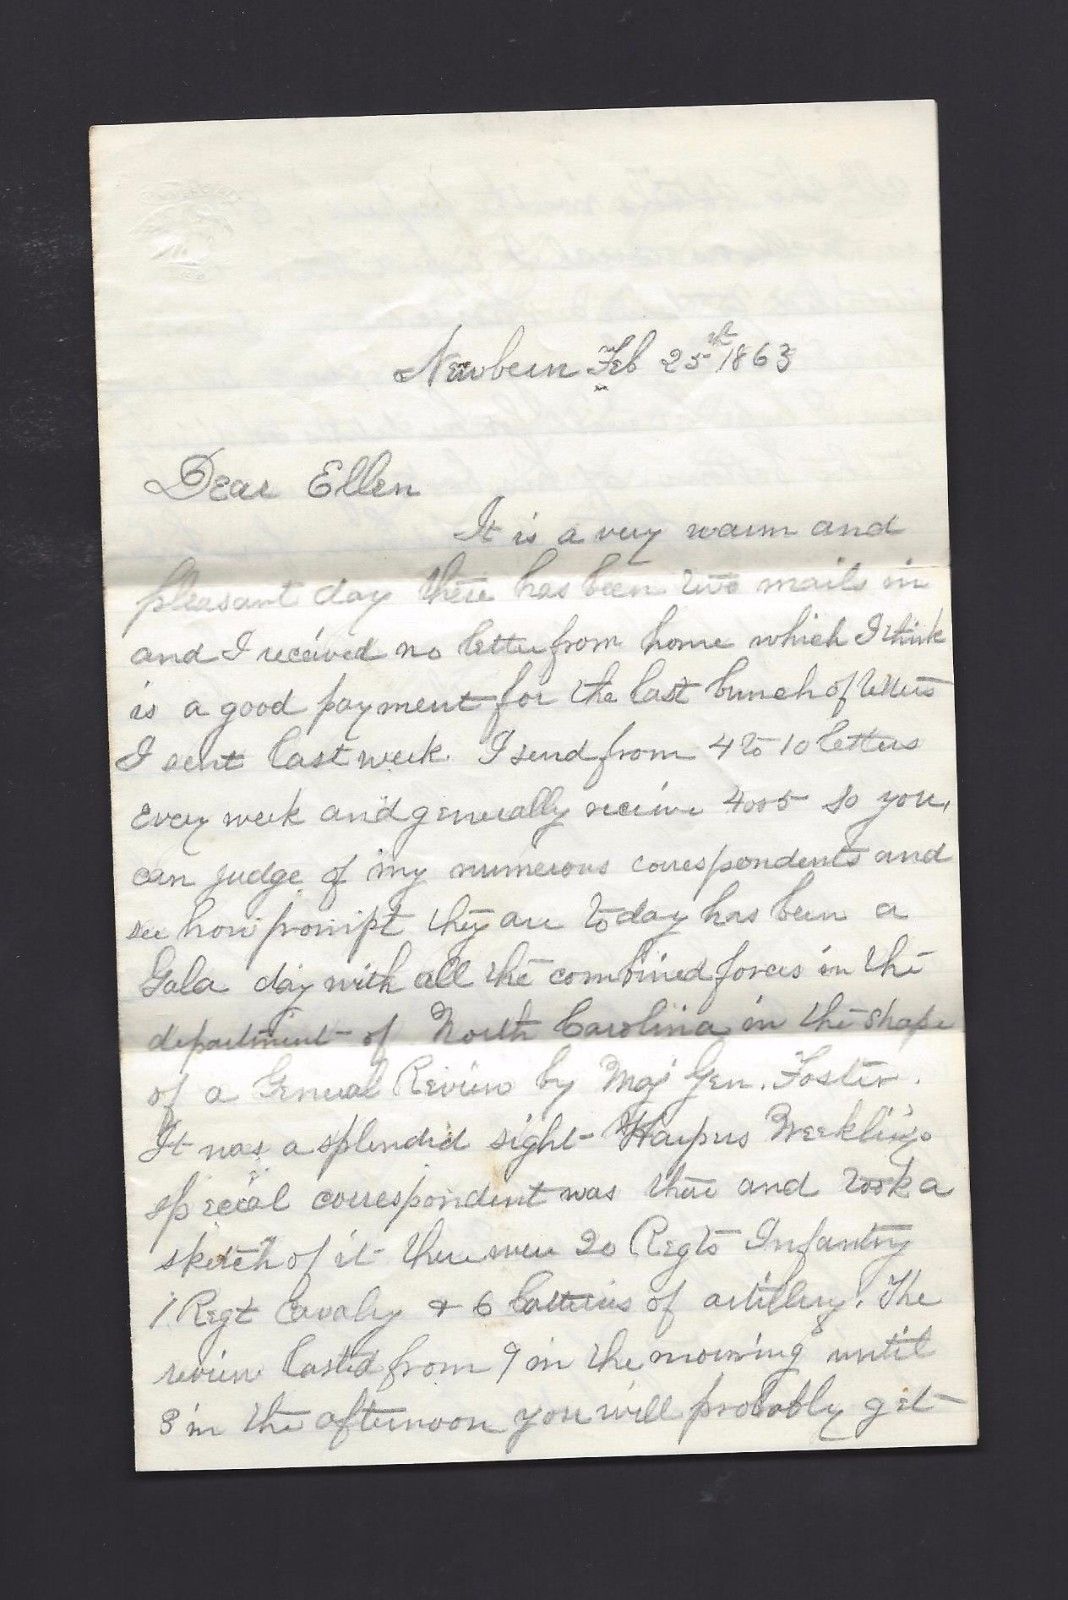 Newbern Feb 25th 1863
Dear Ellen
It is a very warm and
pleasant day there has been two mails in
and I received no letter from home which I think
is a good payment for the last bunch of letters
I sent last week. I send from 4 to 10 letters
every week and generally receive 4 or 5 so you
can judge of my numerous correspondents and
see how prompt they are today has been a
Gala day with all the combined forces in the
department of North Carolina in the shape
of a General Review by Maj Gen. Foster.
It was a splendid sight Harpers Weeklys
special correspondent was there and took a
sketch of it there were 20 Regts Infantry
1 Regt Cavalry & 6 batteries of artillery. The
review lasted from 9 in the morning until
3 in the afternoon you will probably get